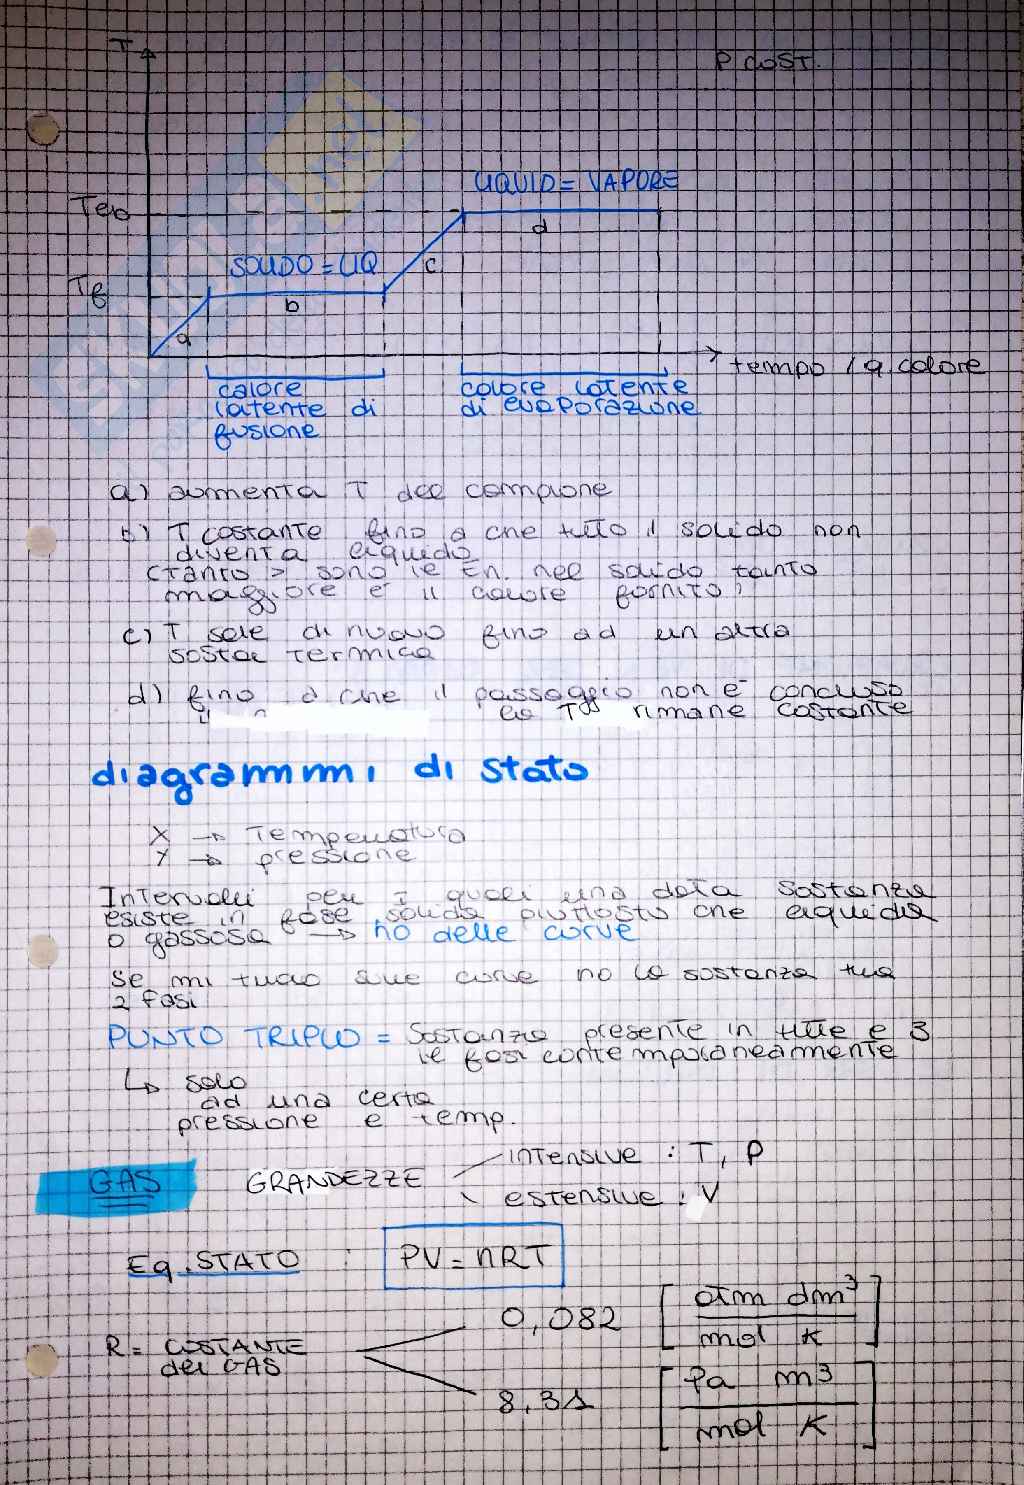 T
P COST.
LIQUID = VAPORE
Teb
d
SOLIDO = LIQ
c
Tf
b
a
tempo / q. calore
calore latente di fusione
calore latente di evaporazione
a) aumenta T del campione
b) T costante fino a che tutto il solido non
diventa liquido
(tanto > sono le En. nel solido tanto
maggiore è il calore fornito)
c) T sale di nuovo fino ad un altra
sosta termica
d) fino a che il passaggio non è concluso
la T rimane costante
diagrammi di stato
X → Temperatura
Y → pressione
Intervalli per i quali una data sostanza
esiste in fase solida piuttosto che liquida
o gassosa → ho delle curve
Se mi trovo sulle curve ho la sostanza tra
2 fasi
PUNTO TRIPLO = Sostanza presente in tutte e 3
le fasi contemporaneamente
↳ solo
ad una certa
pressione e temp.
GAS GRANDEZZE intensive : T, P
estensive : V
Eq. STATO : PV = nRT
0,082 [atm dm³ / mol K]
R = COSTANTE
dei GAS
8,31 [Pa m³ / mol K]